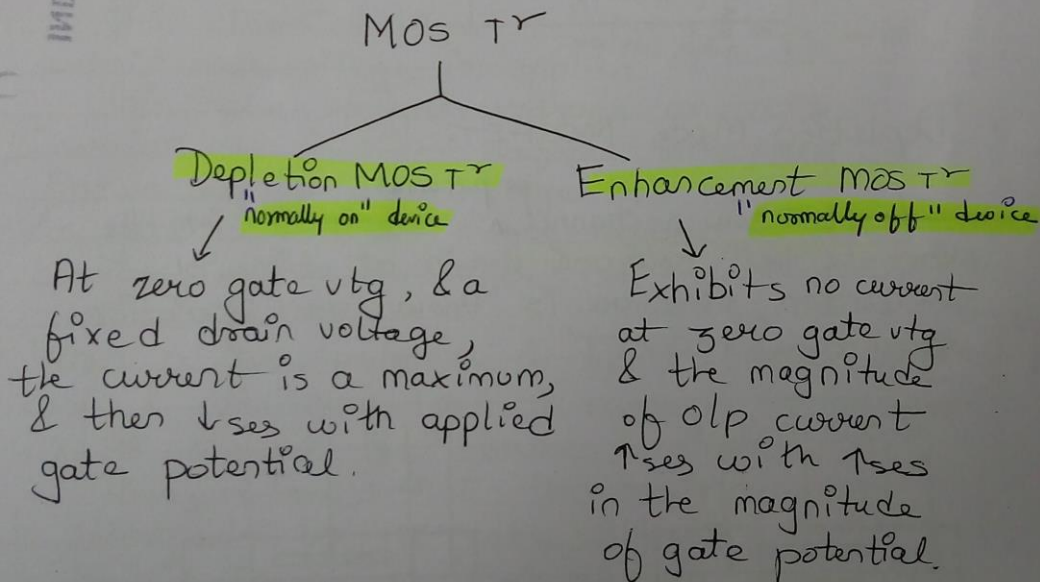 MOS Tr
Depletion MOS Tr
"normally on" device
At zero gate vtg, & a
fixed drain voltage,
the current is a maximum,
& then ↓ses with applied
gate potential.
Enhancement MOS Tr
"normally off" device
Exhibits no current
at zero gate vtg
& the magnitude
of O/p current
↑ses with ↑ses
in the magnitude
of gate potential.